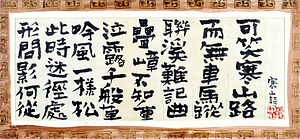 可笑寒山路
而無車馬蹤
聯溪難記曲
疊嶂不知重
泣露千般草
吟風一樣松
此時迷徑處
形問影何從
寒山詩